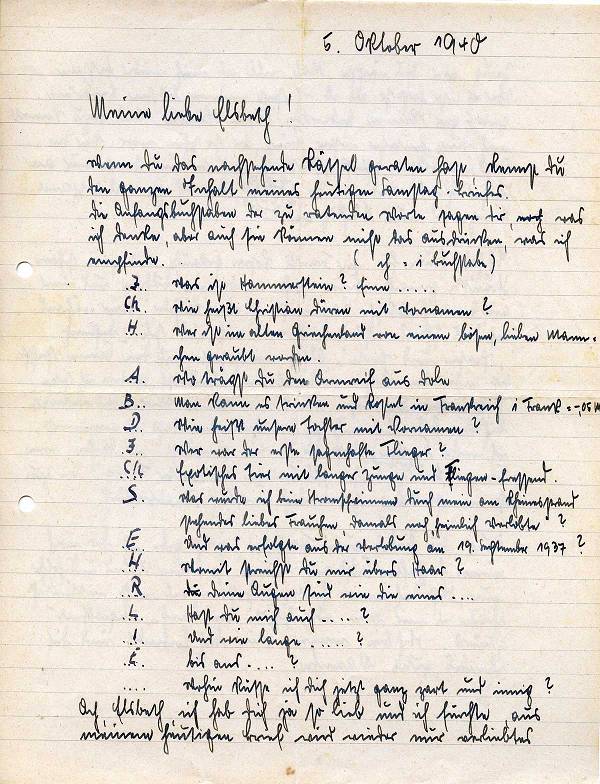 5. Oktober 1940
Meine liebe Elsbeth!
Wenn Du das nachstehende Rätsel geraten hast, kennst Du
den ganzen Inhalt meines heutigen Samstag-Briefes.
Die Anfangsbuchstaben der zu ratenden Worte sagen Dir, was
ich denke, aber auch sie können nicht das ausdrücken, was ich
empfinde. ( ch = 1 Buchstabe)
I. Was ist Hammerstein? Eine .....
Ch. Wie heißt Christian Düren mit Vornamen?
H. Wer ist im alten Griechenland von einem bösen, lieben Mann-
chen geraubt worden.
A. Wo trägst Du den Armreif aus
B. Man kann es trinken und kostet in Frankreich 1 Frank = -,05 M
D. Wie heißt unsere Tochter mit Vornamen?
I. Wer war der erste sagenhafte Flieger?
Ch. Exotisches Tier mit langer Zunge und Fliegen-fressend.
S. Was wurde ich beim durch mein am Rheinstrand
stehendes liebes Frauchen, damals noch "heimlich Verlobte"?
E. Und was erfolgte aus der Verlobung am 19. September 1937?
H. Womit streichst Du mir übers Haar?
R. Deine Augen sind wie die eines ....
L. Hast Du mich auch .....?
I. Und wie lange ......?
E. bis ans .... ?
.... Wohin küsse ich Dich jetzt ganz zart und innig?
Ach Elsbeth, ich hab Dich ja so lieb und ich fürchte, aus
meinem heutigen Brief wird wieder nur verliebtes